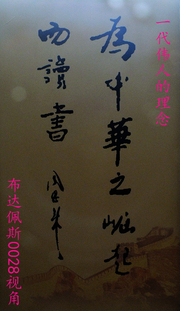 一代伟人的理念
為中華之崛起
而讀書
周恩来
布达佩斯0028视角